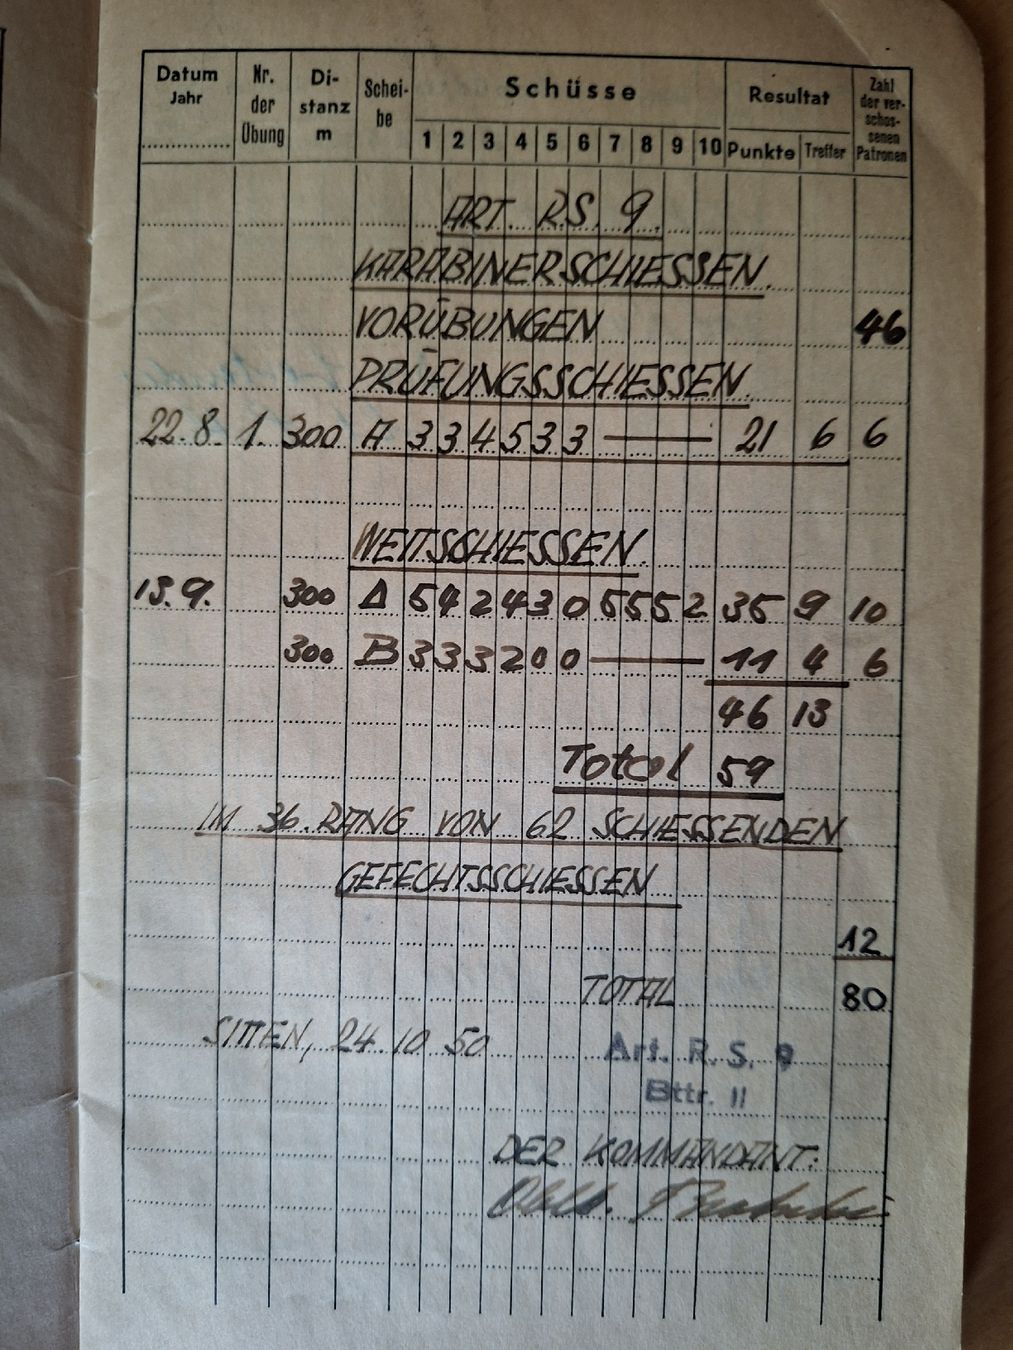 Datum Jahr Nr. der Übung Di-stanz m Schei-be Schüsse Resultat Zahl der ver-schos-senen Patronen
1 2 3 4 5 6 7 8 9 10 Punkte Treffer
ART. R.S. 9.
KARABINERSCHIESSEN.
VORÜBUNGEN 46
PRÜFUNGSSCHIESSEN.
22.8. 1. 300 A 3 3 4 5 3 3 — 21 6 6
WETTSCHIESSEN.
13.9. 300 A 5 4 2 4 3 0 5 5 5 2 35 9 10
300 B 3 3 3 2 0 0 — 11 4 6
46 13
Total 59
IM 36. RANG VON 62 SCHIESSENDEN
GEFECHTSSCHIESSEN
12
TOTAL 80
SITTEN, 24.10.50
Art. R. S. 9
Bttr. II
DER KOMMANDANT: